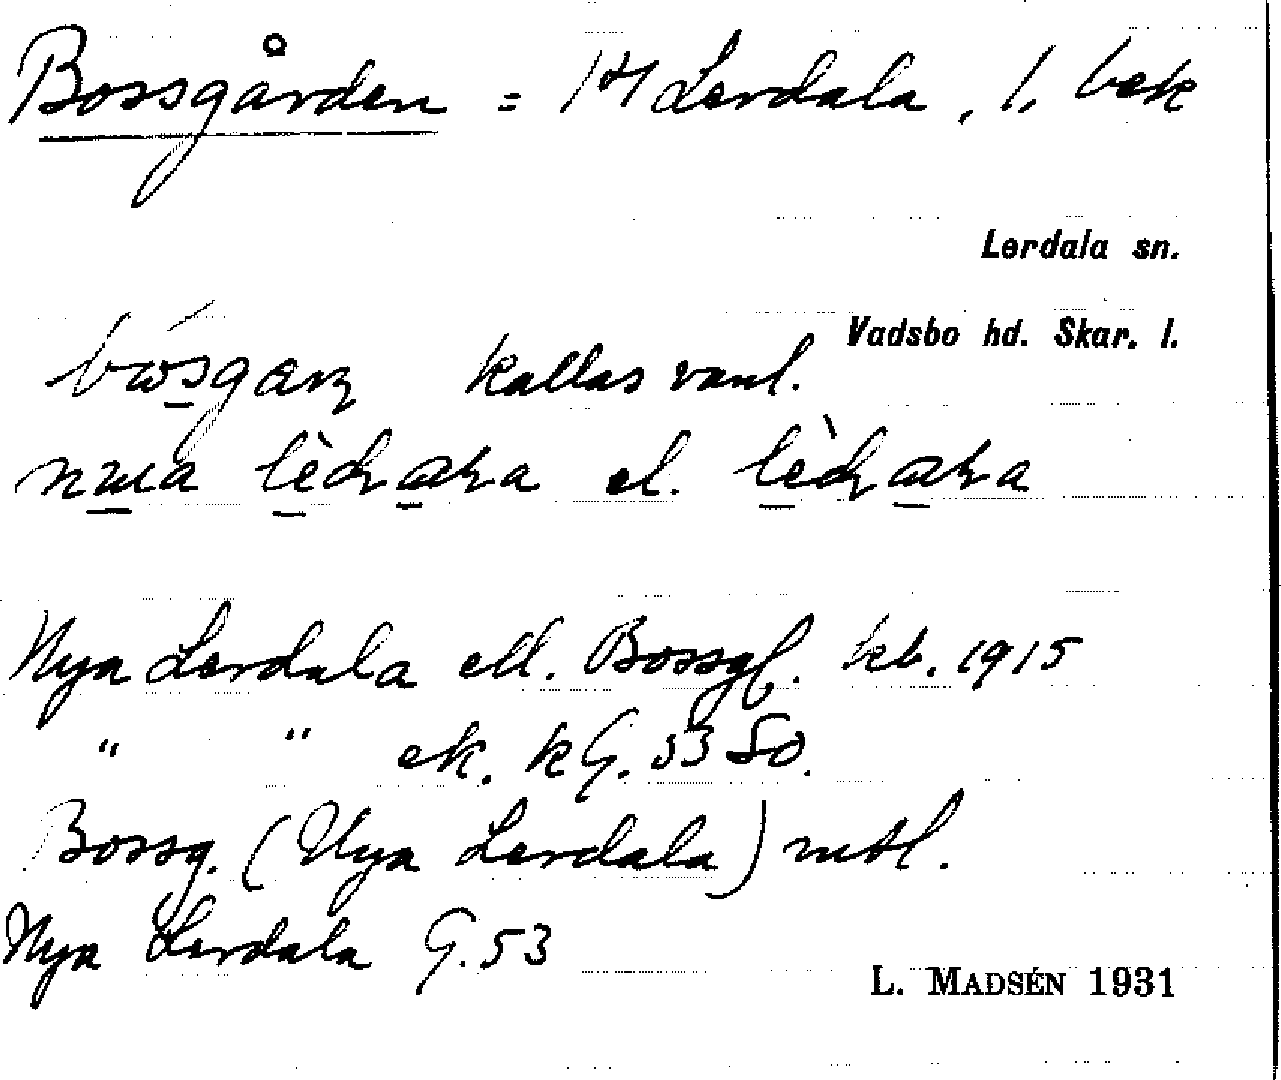 Bossgården = 1 H Lerdala, l. bek
Lerdala sn.
Vadsbo hd. Skar. l.
kallas vanl.
el.
Nya Lerdala ell. Bossg. kb. 1915
" " ek. kG. 53 So.
Bossg. (Nya Lerdala) mtl.
Nya Lerdala G. 53
L. MADSÉN 1931